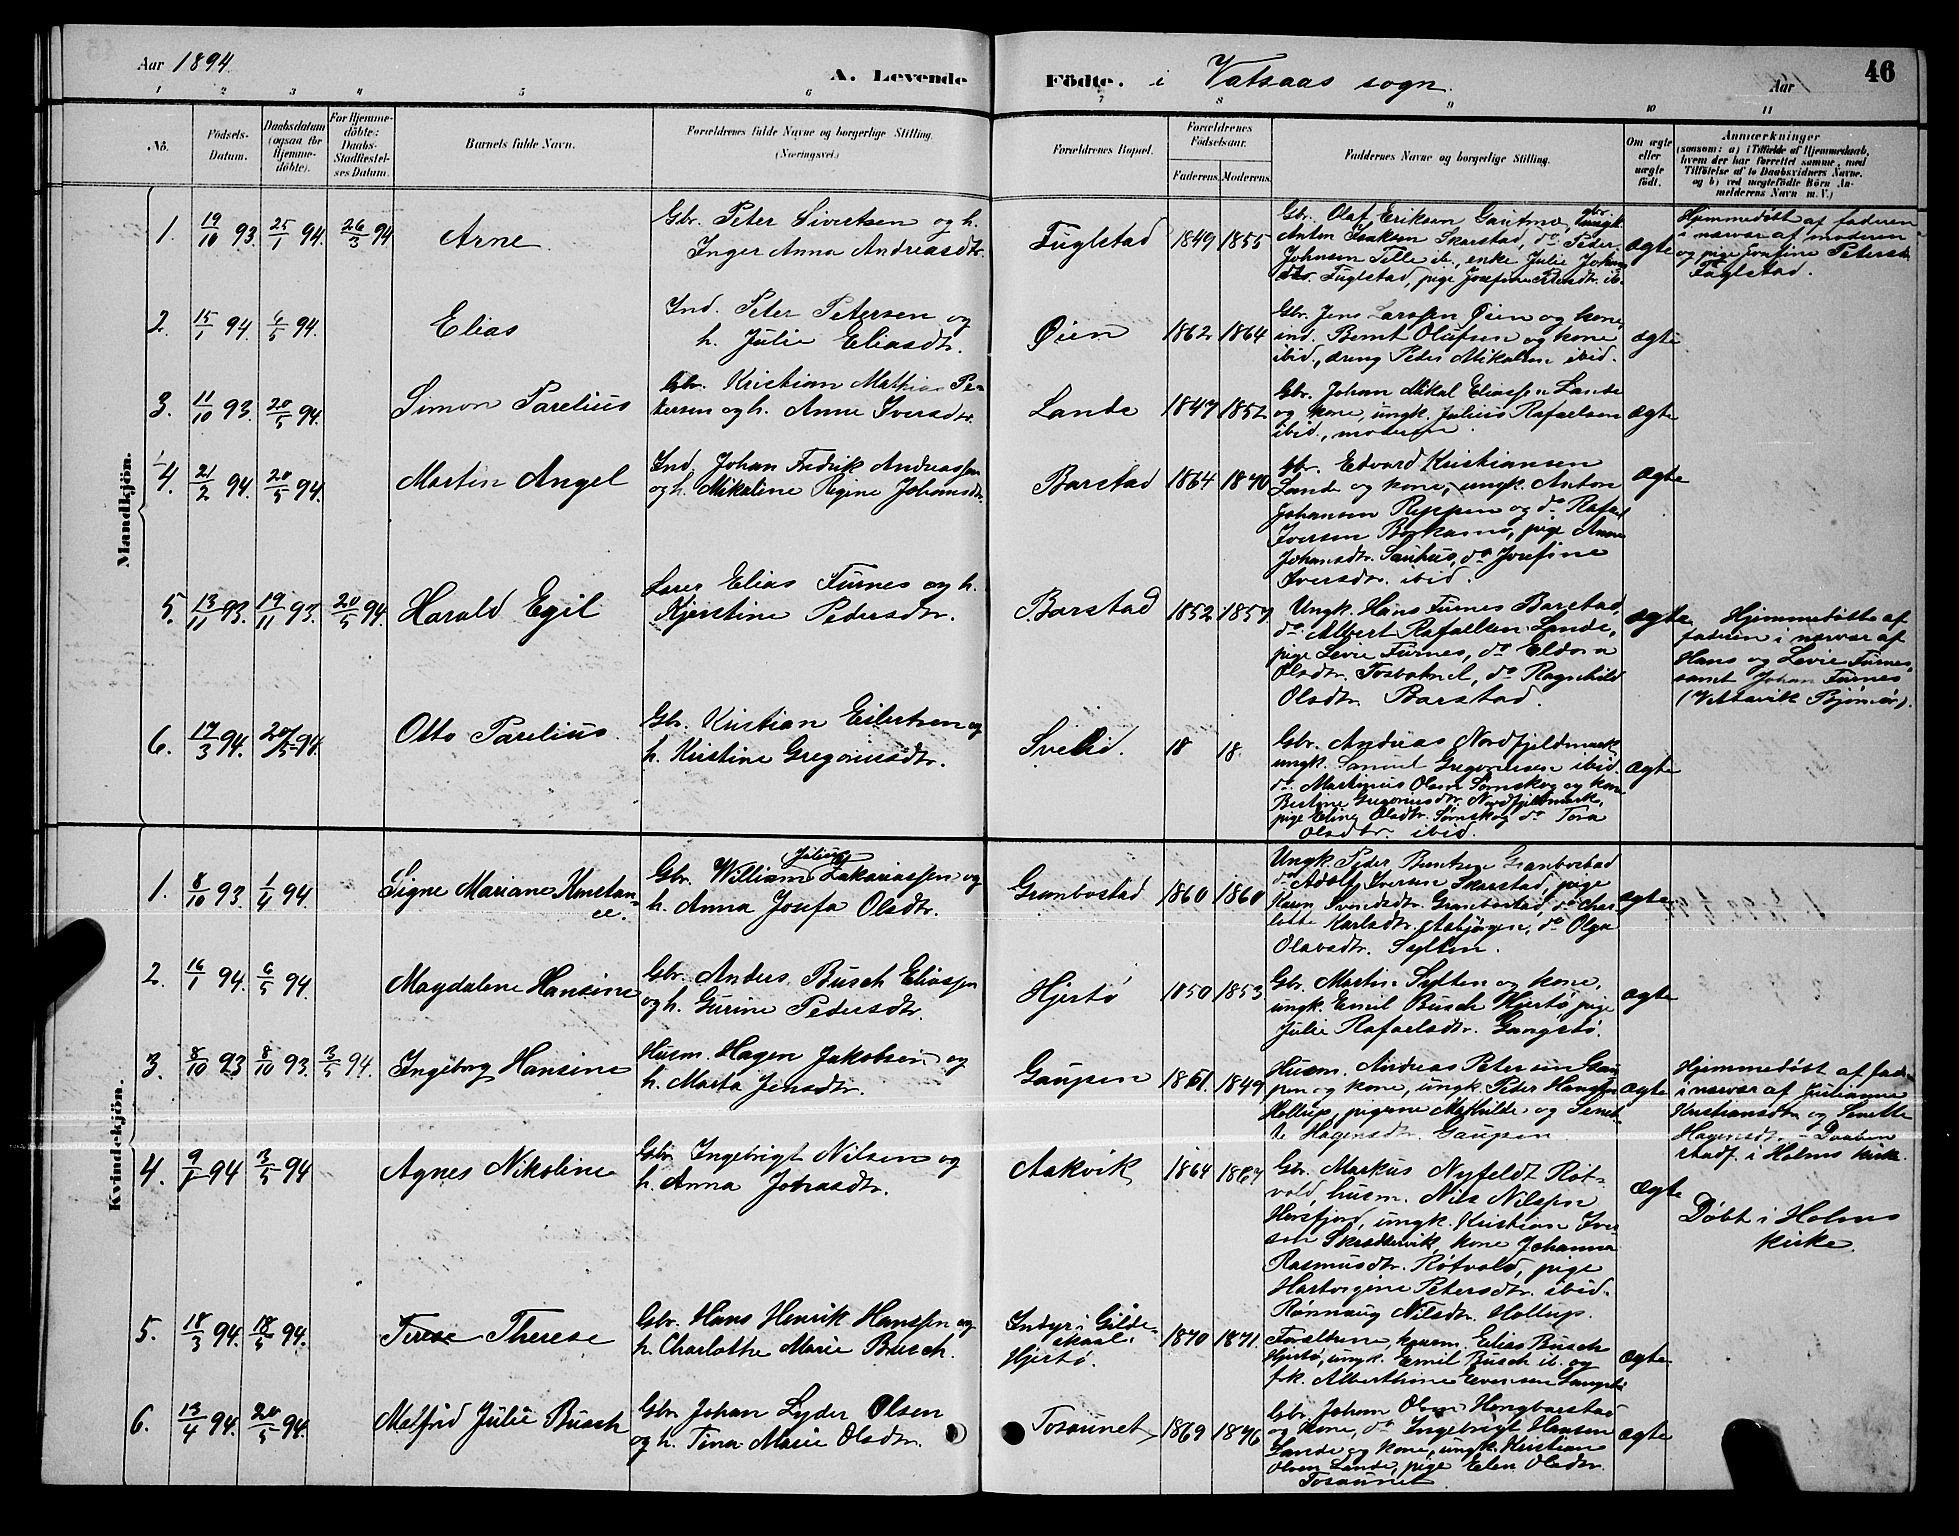 Aar 1894.
A. Levende Födte. i Vatsaas sogn.
Aar
46
1 2 3 4 5 6 7 8 9 10 11
No.
Födsels-Datum.
Daabsdatum (ogsaa for Hjemme-döbte).
For Hjemme-döbte: Daabs-Stadfæstel-ses Datum.
Barnets fulde Navn.
Forældrenes fulde Navne og borgerlige Stilling. (Næringsvei.)
Forældrenes Bopæl.
Forældrenes Födselsaar.
Faderens. Moderens.
Faddernes Navne og borgerlige Stilling.
Om ægte eller uægte födt.
Anmærkninger
(saasom: a) i Tilfælde af Hjemmedaab,
hvem der har forrettet samme, med
Tilföielse af to Daabsvidners Navne.
og b) ved uægtefödte Börn An-
melderens Navn m. V.)
Mandkjön.
1. 19/10 93. 25/1 94. 26/3 94 Arne
Gbr. Peter Sivertsen og h.
Inger Anna Andreasdtr.
Fuglstad 1849 1855
Gbr. Olaf Eriksen Gautmo,
Anton Isaksen Skarstad, do Peder
Johnsen Tille ib., enke Julie Johns
dtr. Fuglstad, pige Josefine Petersdtr. ib.
ægte
Hjemmedöbt af faderen
i nærvær af moderen
og pige Josefine Petersd.
Fuglstad.
2. 15/1 94. 6/5 94. Elias
Ind. Peter Petersen og
h. Julie Eliasdtr.
Øien 1862 1864
Gbr. Jens Larssen Øien og kone,
ind. Bernt Olufsen og kone
ibid., dreng Peder Mikalsen ibid.
ægte
3. 11/10 93. 20/5 94. Simon Parelius
Gbr. Kristian Mathias Pe-
tersen og h. Anne Iversdtr.
Lande 1847 1852
Gbr. Johan Mikal Eliassen Lande
og kone, ungk. Julius Rafaelsen
ibid., moderen.
ægte
4. 21/2 94. 20/5 94. Morten Angel
Ind. Johan Fredrik Andreassen
og h. Mikaline Regine Johansdtr.
Barstad 1864 1870
Gbr. Edvard Kristiansen
Lande og kone, ungk. Anton
Johansen Reppen og do Rafael
Iversen Borkamo, pige Anne
Johansdtr. Sauhus, do Josefine
Iversdtr. ibid.
ægte
5. 13/11 93. 19/11 93. 20/5 94. Harald Egil
Lærer Elias Furnes og h.
Kjerstine Pedersdtr.
Barstad 1852 1857
Ungk. Hans Furnes Barstad,
do Albert Rafaelsen Lande,
pige Levie Furnes, do Eldora
Olsdtr. Tosbotnet, do Ragnhild
Olsdtr. Barstad.
ægte
Hjemmedöbt af
faderen i nærvær af
Hans og Levie Furnes,
samt Johan Furnes
6. 17/3 94. 20/5 94. Otto Parelius
Gbr. Kristian Eilertsen og
h. Kristine Gregoriusdtr.
Svelid. 18 18
Gbr. Andreas Nordfjeldmark,
ungk. Samuel Gregoriusen ibid.
do Martinus Olsen Sömskog og kone
Bertine Gregoriusdtr. Nordfjeldmark,
pige Eling Olsdtr. Sömskog do Tora
Olsdtr. ibid.
ægte
Kvindekjön.
1. 8/10 93. 1/4 94. Signe Mariane Konstan-
ce.
Gbr. William Julius Zakariassen og
h. Anna Josefa Olsdtr.
Granbostad 1860 1860
Ungk. Peder Berntsen Granbostad
do Adolf Iversen Skarstad, pige
Karen Svendsdtr. Granbostad, do Char-
lotte Karlsdtr. Aabjörgen, do Olga
Olavsdtr. Sylten.
ægte
2. 16/1 94. 6/5 94. Magdalene Hansine
Gbr. Anders Busch Eliassen
og h. Gurine Pedersdtr.
Hjertö 1850 1853
Gbr. Martin Sylten og kone,
ungk. Emil Busch Hjertö, pige
Julie Rafaelsdtr. Gangstö.
ægte
3. 8/10 93 8/10 93. 3/5 94. Ingeborg Hansine
Husm. Hagen Jakobsen og
h. Marta Jensdtr.
Gaupen 1851. 1849
Husm. Andreas Petersen Gau-
pen og kone, ungk. Peter Hansen
Hollup, pigerne Mathilde og Senet-
te Hagensdtr. Gaupen.
ægte
Hjemmedöbt af fade
i nærvær af Julianne
Kristiansdtr. og Senette
Hagensdtr. – Daaben
stadf. i Holms kirke.
4. 9/1 94 3/5 94. Agnes Nikoline
Gbr. Ingebrigt Nilsen og
h. Anna Johasdtr.
Aakvik 1864 1867
Gbr. Markus Nyfeldt Röt-
vold, husm. Nils Nilssen
Horsfjord, ungk. Kristian Iver-
sen Skreddervik, kone Johanna
Rasmusdtr. Rötvold, pige
Hartvigine Petersdtr. ibid.
Rönnaug Nilsdtr. Hollup.
ægte
Döbt i Holms
kirke.
5. 18/3 94. 18/5 94. Terese Therese
Gbr. Hans Henrik Hanssen og
h. Charlotte Marie Busch.
Indyr i Gilde-
skaal.
Hjertö.
1870 1871.
Forældrene, kaarm. Elias Busch
Hjertö, ungk. Emil Busch ib. og
frk. Alberthine Eversen
ægte
6. 13/4 94. 20/5 94. Melfrid Julie Busch
Gbr. Johan Lyder Olsen
og h. Tina Marie Olsdtr.
Tosaunet 1869 1876
Gbr. Johan Olsen Hongbarstad
og kone, do Ingebrigt Hansen
Lande og kone, ungk. Kristian
Olsen Lande, pige Elen Olsdtr.
Tosaunet.
ægte